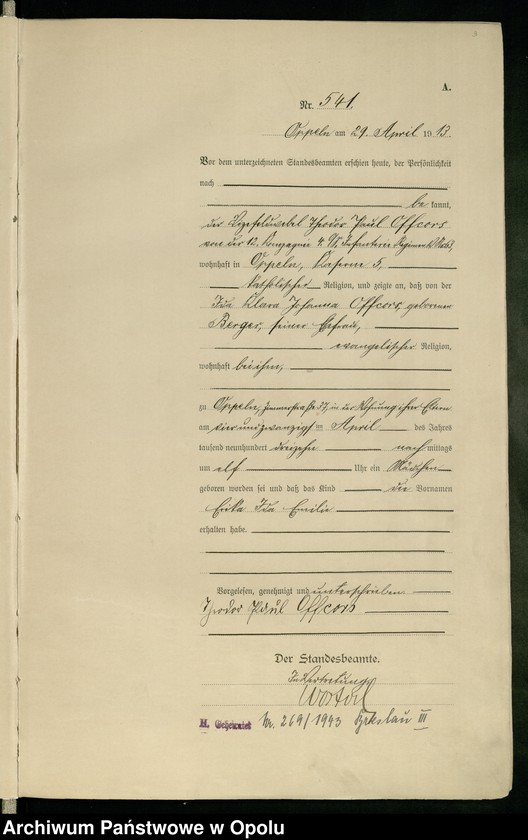 A.
Nr. 541.
Oppeln am 29. April 1913.
Vor dem unterzeichneten Standesbeamten erschien heute, der Persönlichkeit
nach
be kannt,
der Vizefeldwebel Theodor Paul Offcors
von der 12. Kompagnie 4. O/S. Infanterie Regiments No 63,
wohnhaft in Oppeln, Kaserne 5,
katholischer Religion, und zeigte an, daß von der
Ida Klara Johanna Offcors, geborenen
Berger, seiner Ehefrau,
evangelischer Religion,
wohnhaft bei ihm,
zu Oppeln, Zimmerstraße 37, in der Wohnung ihrer Eltern
am vier und zwanzigsten April des Jahres
tausend neunhundert dreizehn nach mittags
um elf Uhr ein Mädchen
geboren worden sei und daß das Kind die Vornamen
Erika Ida Emilie
erhalten habe.
Vorgelesen, genehmigt und unterschrieben
Theodor Paul Offcors
Der Standesbeamte.
In Vertretung
H. Geheiratet Nr. 269/1943 Breslau III
Archiwum Państwowe w Opolu